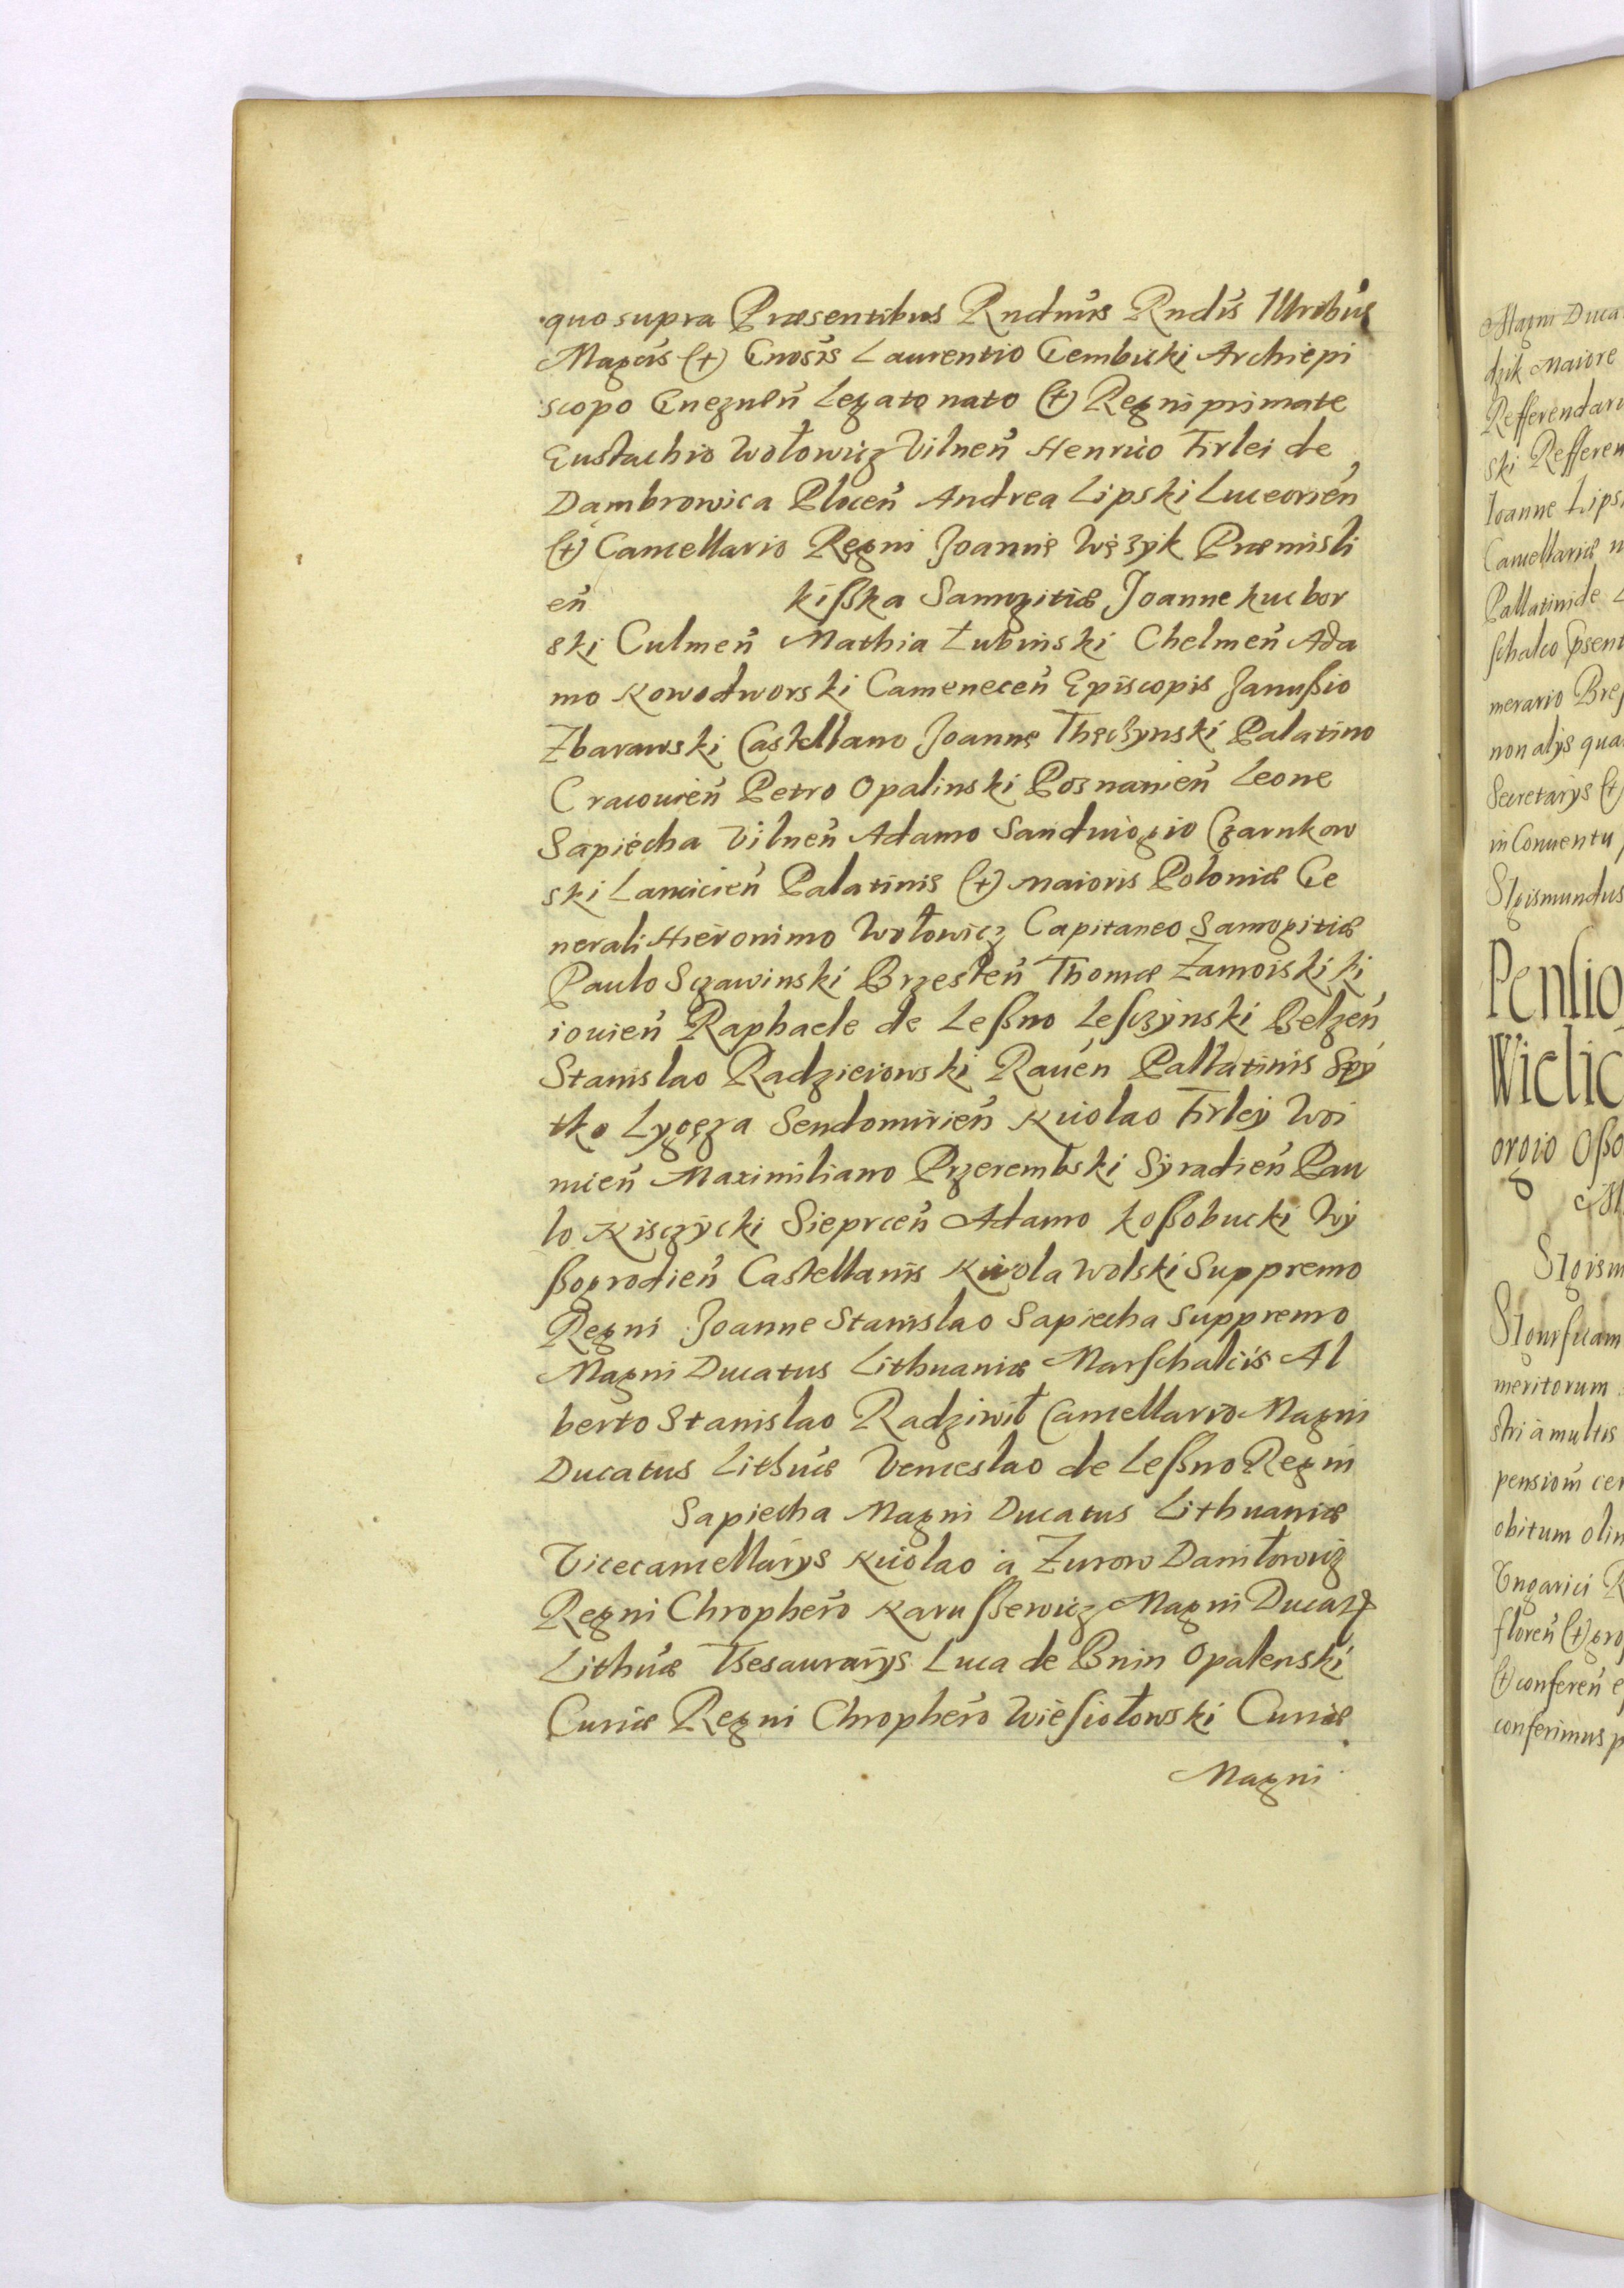 quo supra Præsentibus Rndmis Rndis Illribus
Magcis (+) Gnosis Laurentio Gembicki Archiepi
scopo Gneznen Legato nato (+) Regni primate
Eustachio Wołowicz Vilnen Henrico Firlei de
Dąmbrowica Plocen Andrea Lipski Luceorien
(+) Cancellario Regni Joanne Wężyk Præmisli
en kißka Samogitiæ Joanne kucbor
ski Culmen Mathia Łubinski Chelmen Ada
mo Nowodworski Camenecen Episcopis Janußio
Zbarawski Castellano Joanne Thęczynski Palatino
Cracovien Petro Opalinski Posnanien Leone
Sapiecha Vilnen Adamo Sandivogio Czarnkow
ski Lancicien Palatinis (+) Maioris Poloniæ Ge
nerali Hieronimo Wołowicz Capitaneo Samogitiæ
Paulo Sczawinski Brzesten Thoma Zamoiski ki
iovien Raphaele de Leßno Lesczÿnski Belzen
Stanislao Radzieiowski Raven Pallatinis Spÿ
tko Lygęza Sendomirien Nicolao Firleÿ Woi
nicen Maximiliano Przerembski Sÿradien Pau
lo Nisczÿcki Sieprcen Adamo koßobucki Wÿ
ßogrodien Castellanis Nicola Wolski Suppremo
Regni Joanne Stanislao Sapiecha Suppremo
Magni Ducatus Lithuaniæ Marschalcis Al
berto Stanislao Radziwił Cancellario Magni
Ducatus Lithuæ Venceslao de Leßno Regni
Sapiecha Magni Ducatus Lithuaniæ
Vicecancellarÿs Nicolao a Zurow Daniłowicz
Regni Chrophero Narußewicz Magni Ducatus
Lithuæ Thesaurarÿs Luca de Bnin Opalenski
Curiæ Regni Chrophero Wiesiołowski Curiæ
Magni
Magni Duca
dzik Maiore
Refferendari
ski Refferen
Ioanne Lips
Cancellariæ
Pallatinide
schalco
merario
non alÿs qua
Secretarÿs (+)
in Conventu
Sigismundus
Pensio
Wielic
orgio Oßo
Sigism
meritorum
stri a multis
pensiom cer
obitum olim
Vngarici R
floren (+) gro
(+) conferen
conferimus p